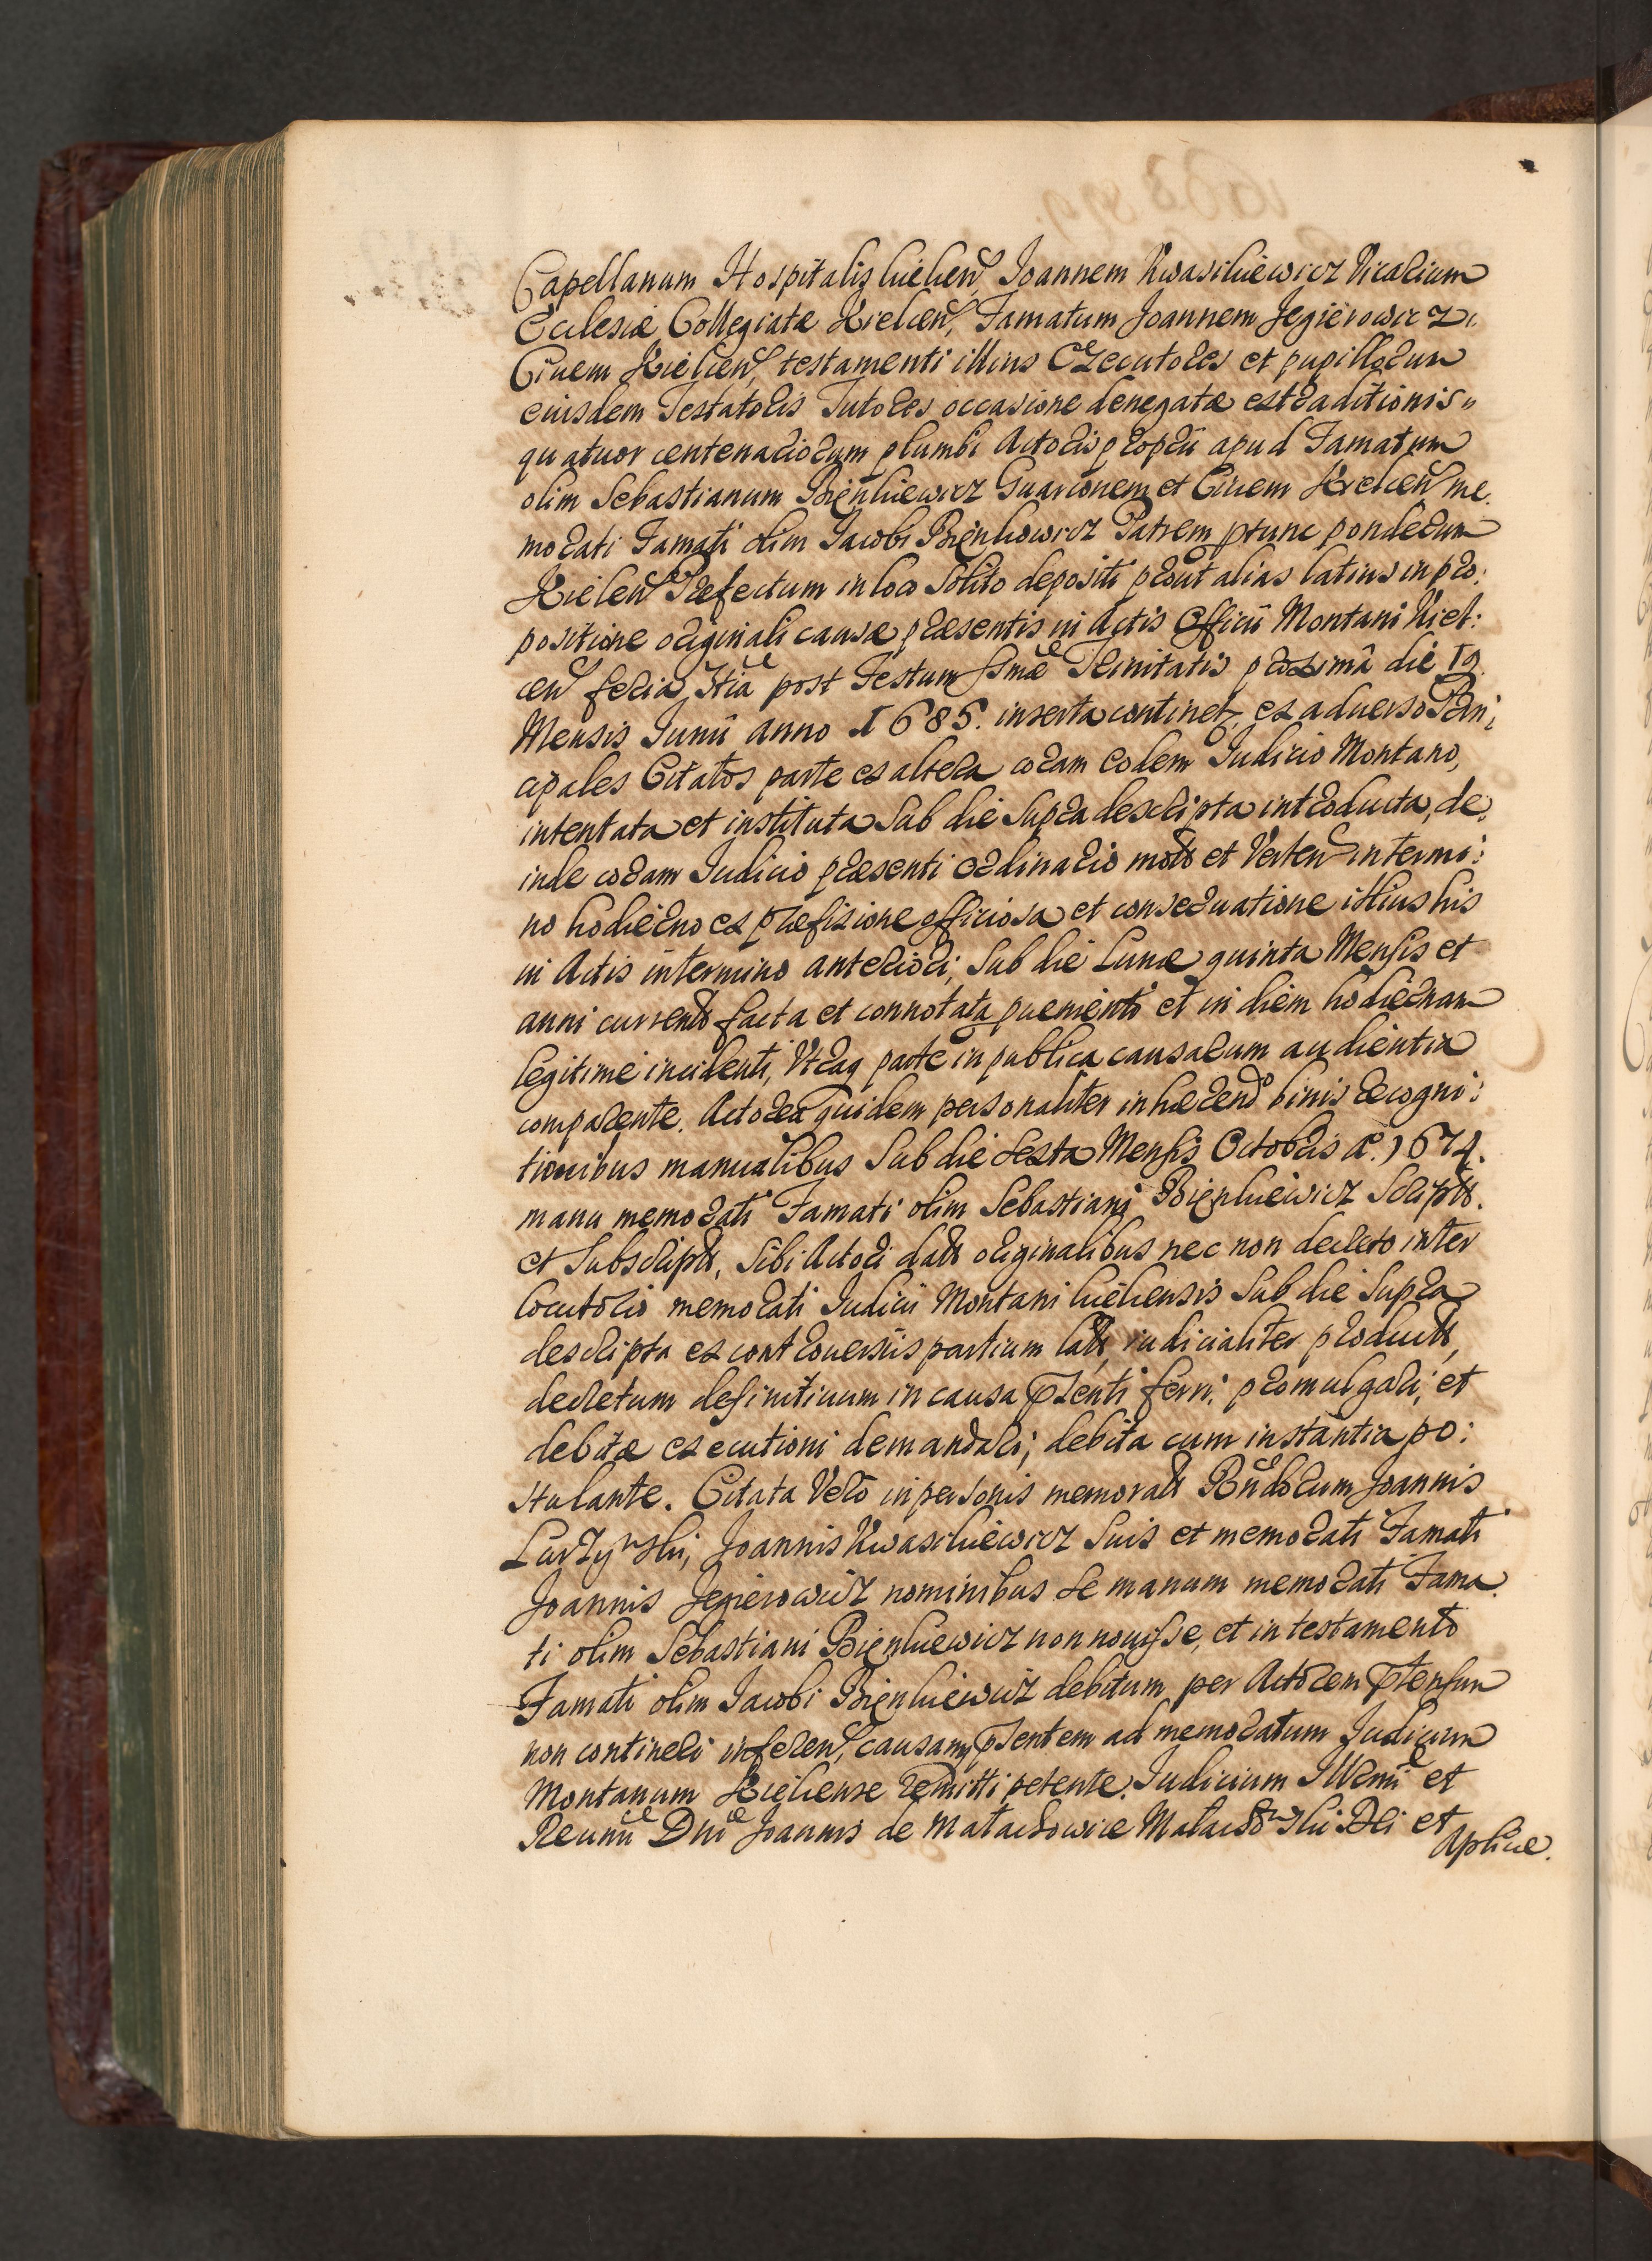 Capellanum Hospitalis kielcen, Joannem Kwasikiewicz Vicarium
Ecclesiæ Collegiatæ Kielcen, Famatum Joannem Jegierowicz
Ciuem Kielcen, testamenti illius Executores et pupillorum
eiusdem Testatoris Tutores occasione denegatæ extraditionis
quatuor centenariorum plumbi Actoris proprii apud Famatum
olim Sebastianum Bięnkiewicz Guarionem et Ciuem Kielcen me.
morati Famati olim Jacobi Bięnkowicz Patrem ptunc ponderum
Kielcen Præfectum in loco solito depositi prout alias latius in pro:
positione originali causæ præsentis in Actis Officii Montani Kiel:
cen feria 3tia post Festum Ssmæ Trinitatis proxima die 19
Mensis Junii anno 1685. inserta continet, ex aduerso Prin:
cipales Citatos parte ex altera coram eodem Judicio Montano,
intentata et instituta sub die supra descripta introducta, de:
inde coram Judicio præsenti ordinario mots et Verten in termi:
no hodierno ex præfixione officiosa et conseruatione illius his
in Actis in termino anteriori, sub die Lunæ quinta Mensis et
anni currents facta et connotata puenients et in diem hodiernam
legitime incidenti, Vtraq parte in publica causarum audientia
comparente. Actorea quidem personaliter inhærendo binis recogni:
tionibus manualibus sub die sexta Mensis Octobris A. 1674.
manu memorati Famati olim Sebastiani Bięnkiewicz scripts.
et subscripts, sibi Actori dats originalibus nec non decreto inter
locutorio memorati Judicii Montani kielcensis sub die supra
descripta ex controuersiis partium lats, iudicialiter products,
decretum definitiuum in causa pnti ferri, promulgari, et
debitæ executioni demandari, debita cum instantia po:
stulante. Citata Vero in personis memorats Rndorum Joannis
Joannis Kwasikiewicz suis et memorati Famati
Joannis Jegierowicz nominibus se manum memorati Fama
ti olim Sebastiani Bięnkiewicz non nouisse, et in testamento
Famati olim Jacobi Bięnkiewicz debitum per Actorem ptensum
non contineri inferen, causam pntem ad memoratum Judicium
Montanum Kielcense remitti petente. Judicium Illmi et
Reumi Dni Joannis de Małachowice Małachowski Dei et
Aplicæ.